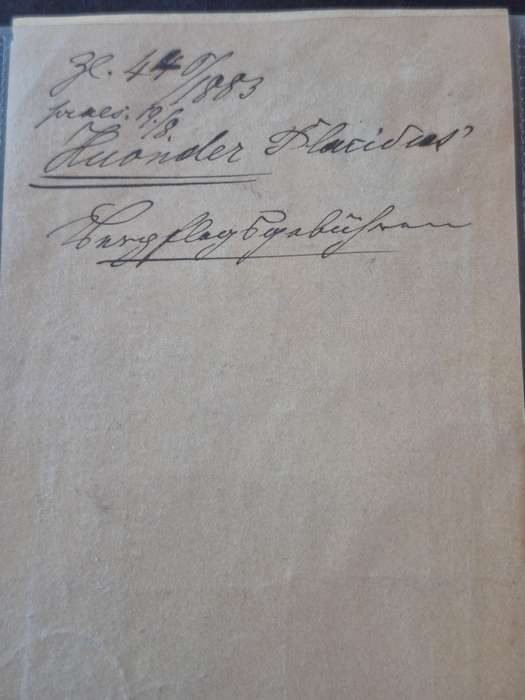 Zl. 440/1883
praes. 19/8.
Huonder Placidus'
Verpflegsgebühren